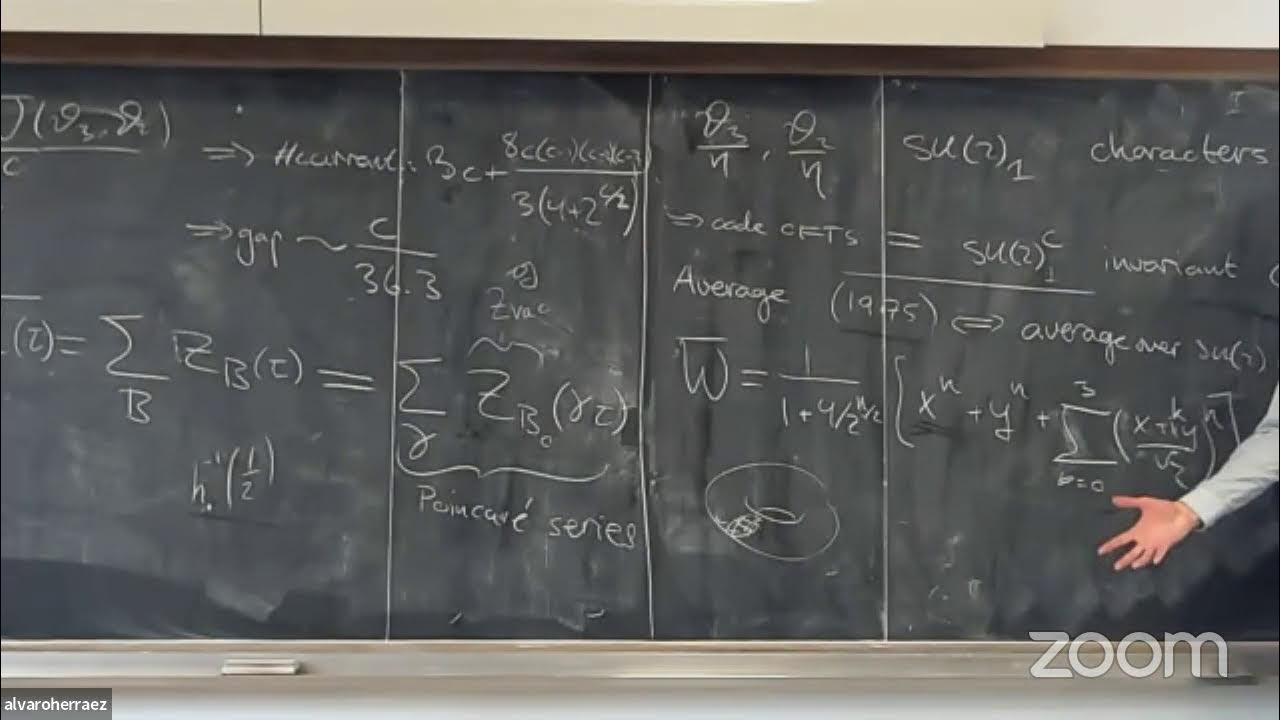 J(ϑ₃, ϑ₂) / c
⇒ # currents: 3c + 8c(c-1)(c-2) / 3(4+2^{c/2})
⇒ gap ~ c / 36.3
(τ) = Σ_B Z_B(τ) = Σ_γ Z_{B₀}(γτ)
of
Zvac
h^{-1}(1/2)
Poincaré series
ϑ₃/η , ϑ₂/η
SU(2)₁ characters
⇒ code CFTs = SU(2)₁^c invariant
Average (1975) ⟺ average over SU(2)
W̄ = 1 / (1+4/2^{n/2}) [xⁿ + yⁿ + Σ_{k=0}^{3} ((x+i^k y)/√2)ⁿ]
zoom
alvaroherraez